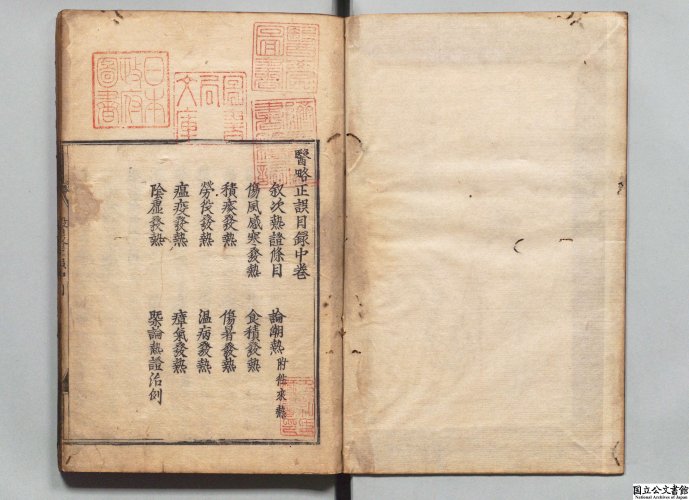 醫略正誤目録中巻
敘次熱證條目
論潮熱 附往来熱
傷風感寒發熱
食積發熱
積痰發熱
傷暑發熱
勞役發熱
温病發熱
瘟疫發熱
瘴氣發熱
陰虚發熱
槩論熱證治例
日本
政府
圖書
文庫
国立公文書館
National Archives of Japan